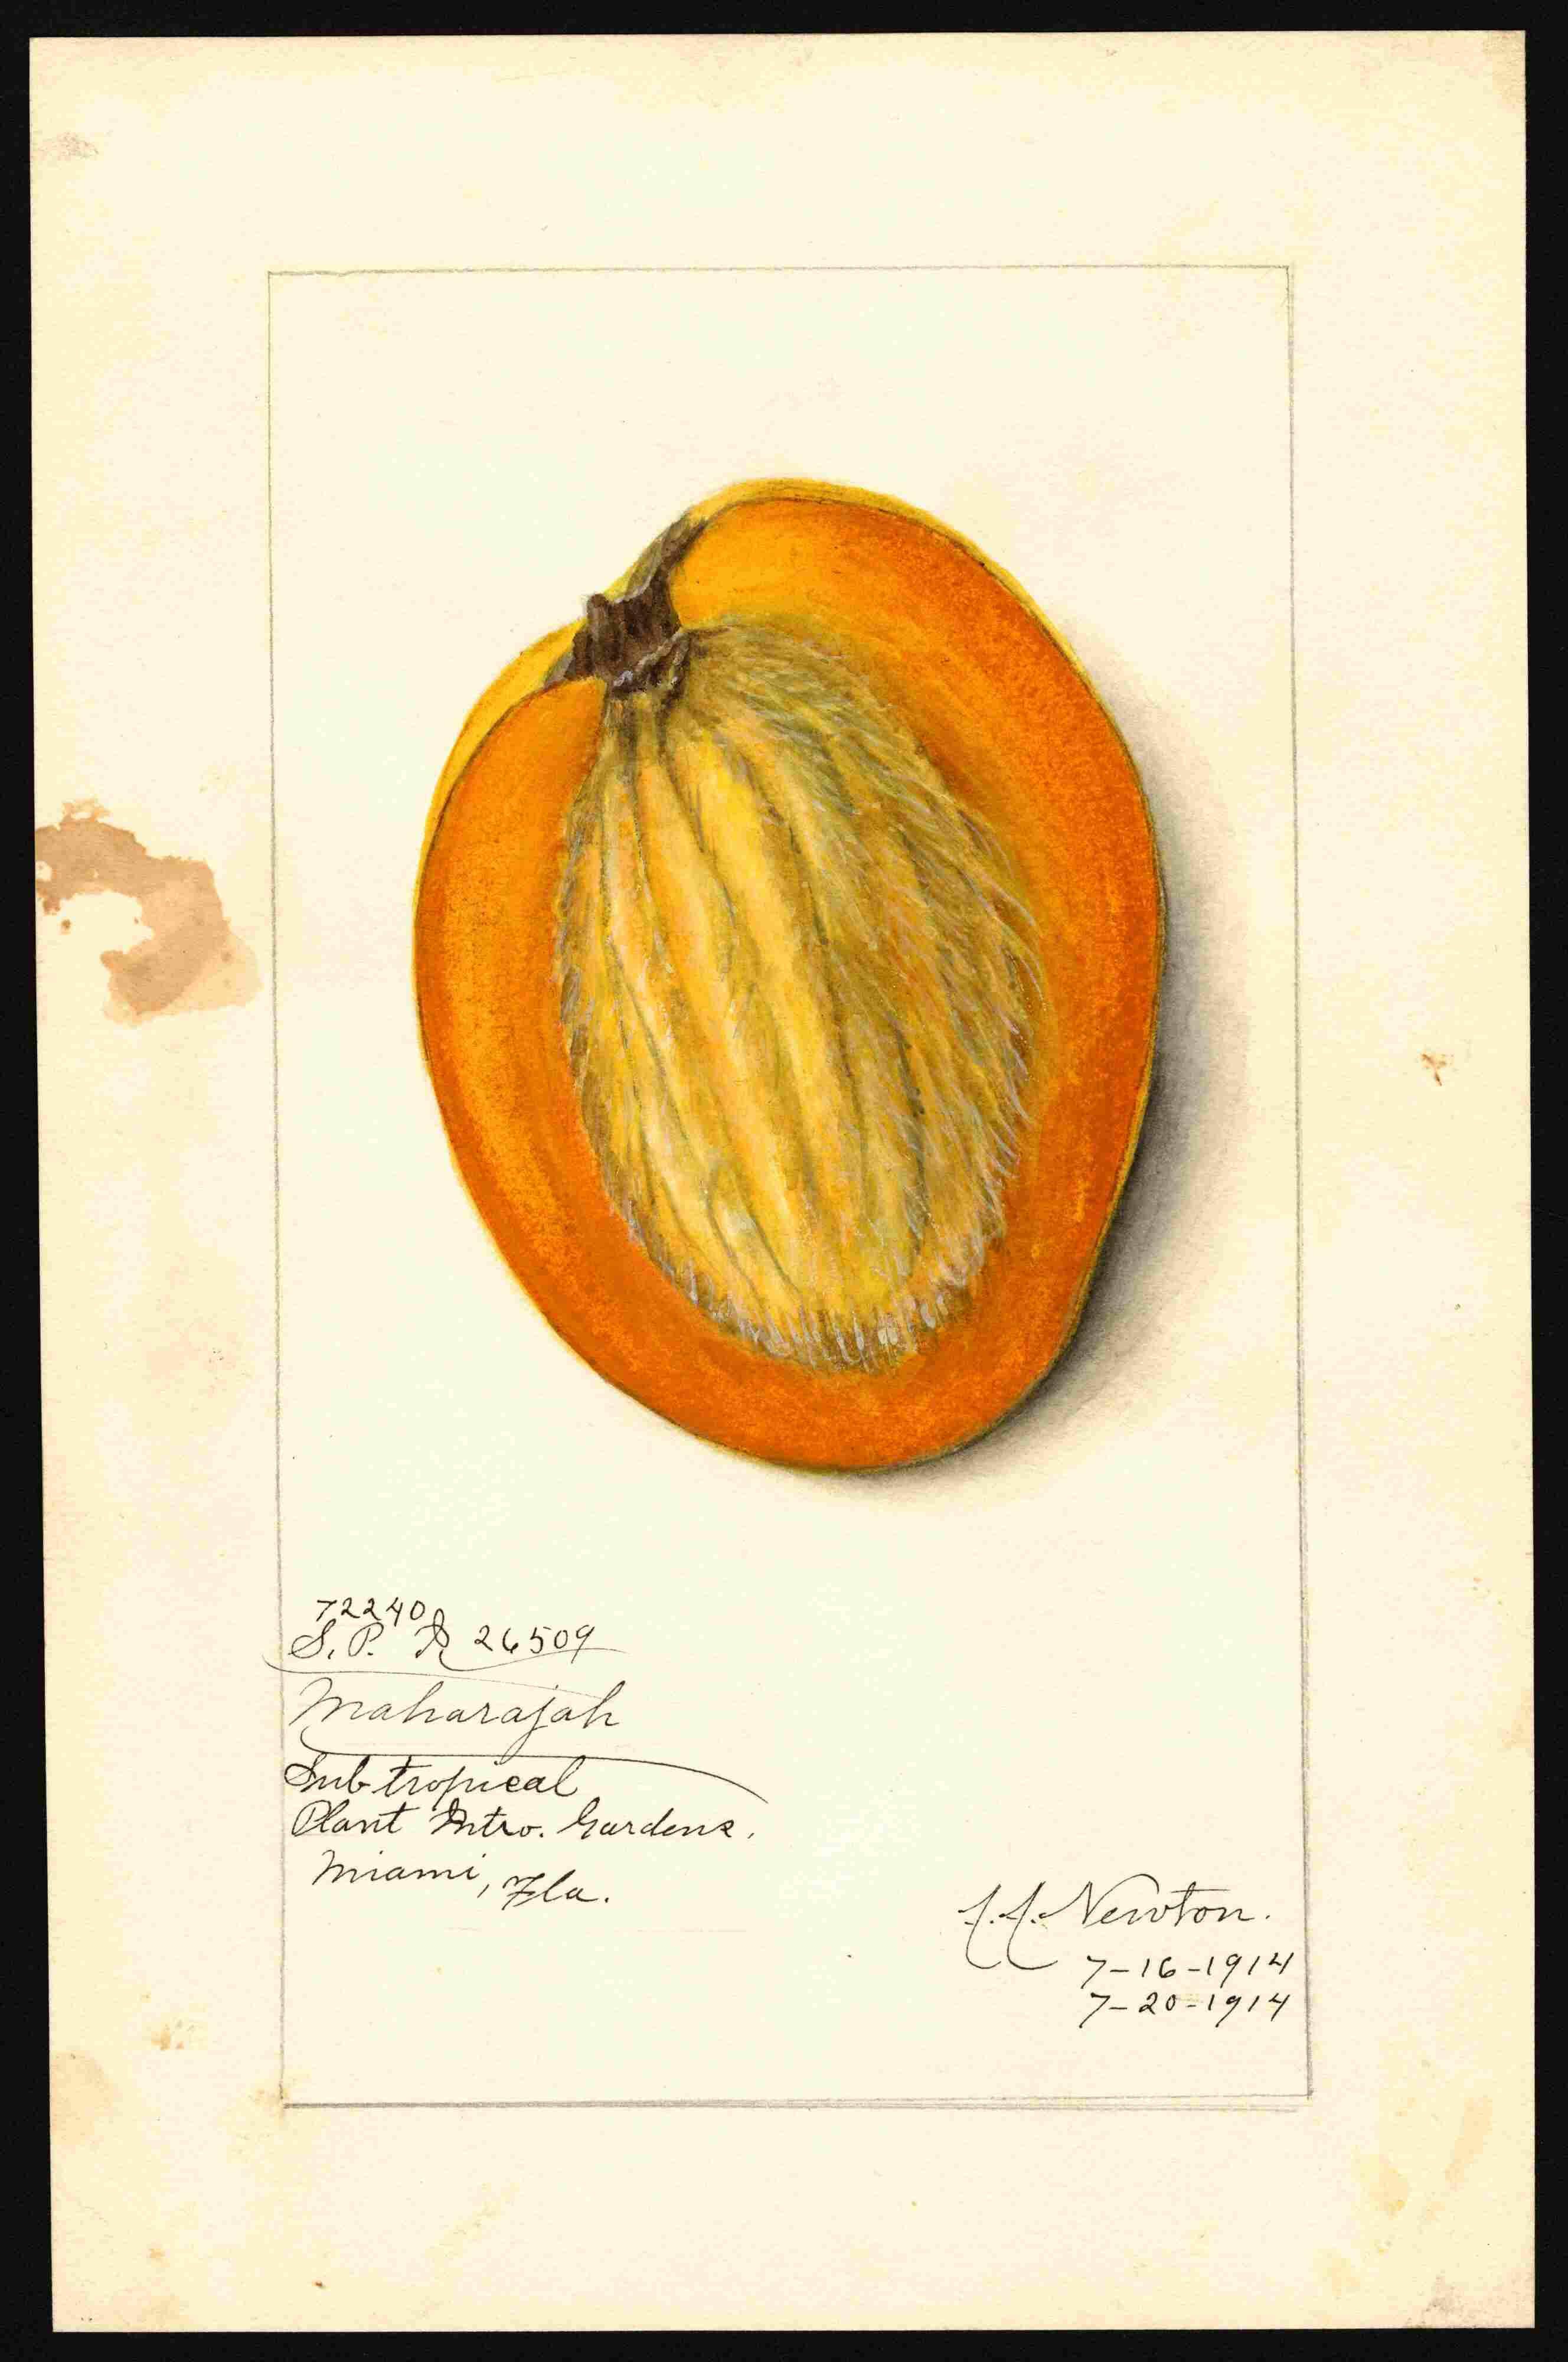 72240
S. P. I. 26509
Maharajah
Sub-tropical
Plant Intro. Gardens.
Miami, Fla.
A. A. Newton.
7-16-1914
7-20-1914